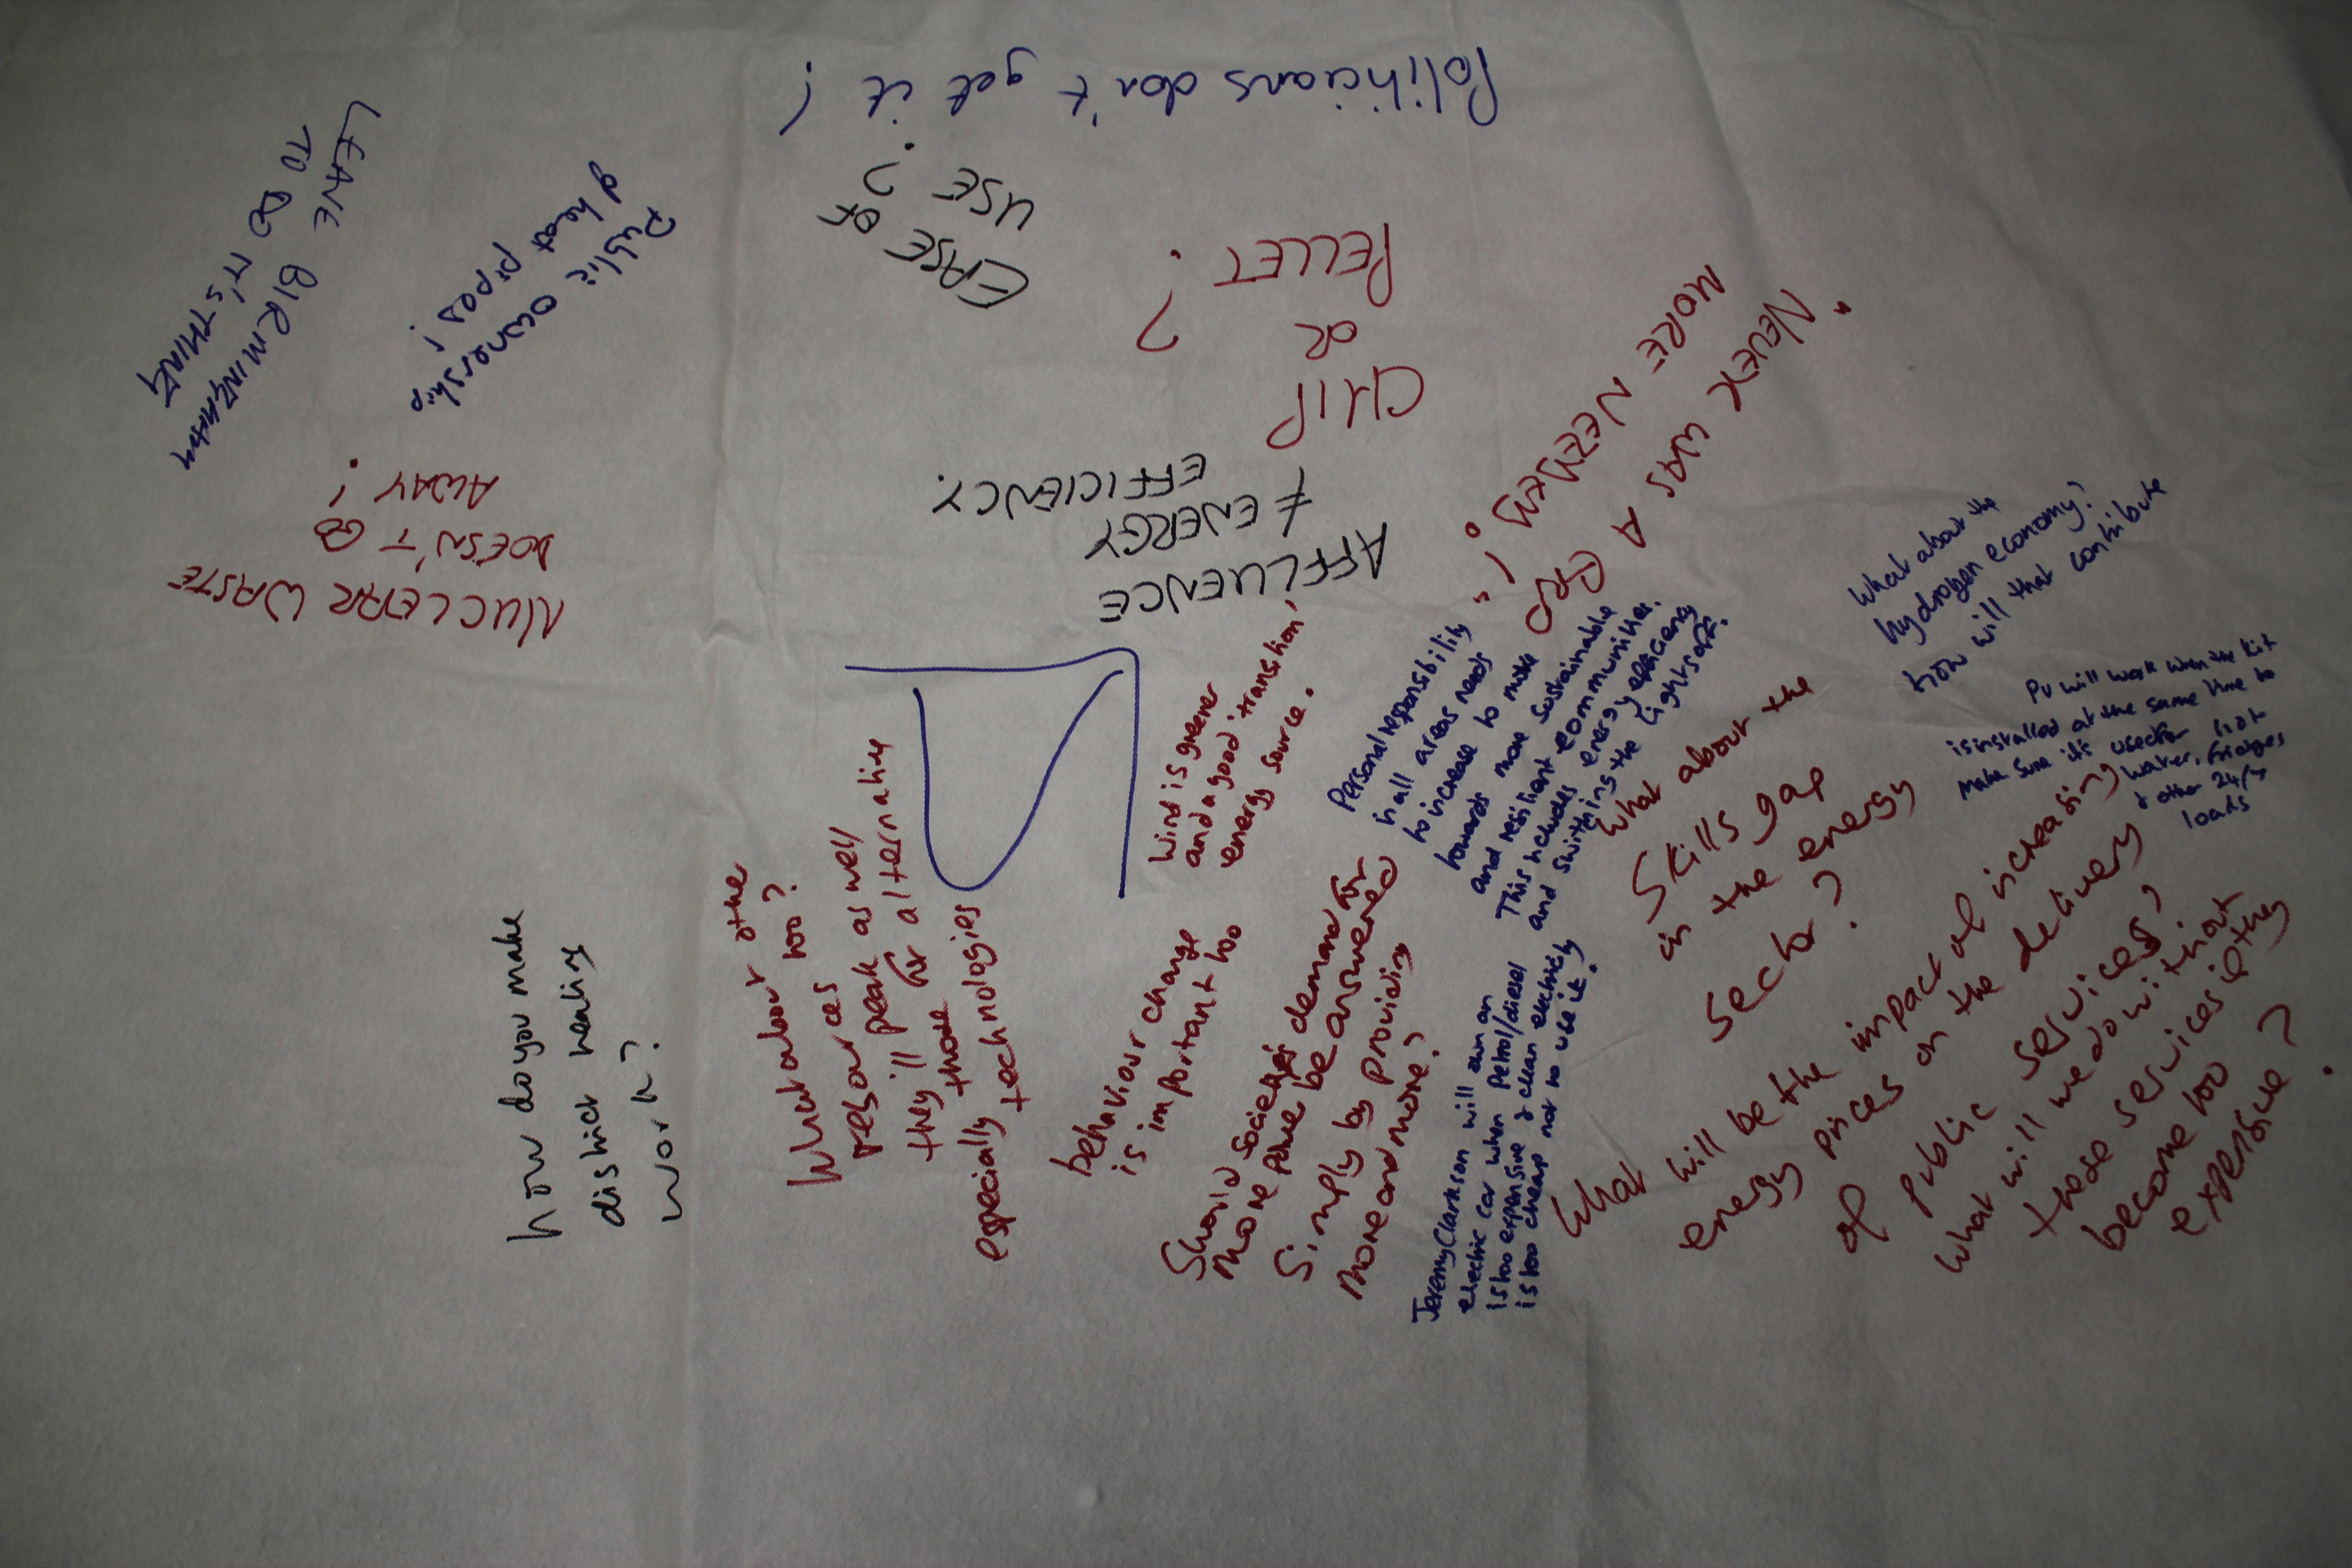 Politicians don't get it!
LEAVE BIRMINGHAM
TO DO IT'S THING
Public ownership
of heat pipes!
EASE OF
USE?
CHIP
OR
PELLET?
NUCLEAR WASTE
DOESN'T GO
AWAY!
AFFLUENCE
≠ ENERGY
EFFICIENCY.
"NEVER WAS A
MORE NEEDED!"
What about the
hydrogen economy?
How will that contribute
PV will work when the kit
is installed at the same time to
make sure it's used for hot
water, fridges
& other 24/7
loads
Personal responsibility
in all areas needs
to increase to move
towards more sustainable
and resilient communities.
This includes energy efficiency
and switching the lights off.
Wind is greener
and a good transition,
energy source.
What about the
Skills gap
in the energy
sector?
What about othe
resources too?
resources peak as well
they'll for alternative
those
especially technologies
how do you make
district heating
work?
behaviour change
is important too
Should societies demand for
more power be answered
Simply by providing
more and more?
Jeremy Clarkson will own an
electric car when petrol/diesel
is too expensive & clean electricity
is too cheap not to use it!
What will be the impact of increasing
energy prices on the delivery
of public services?
What will we do without
these services if they
become too
expensive?